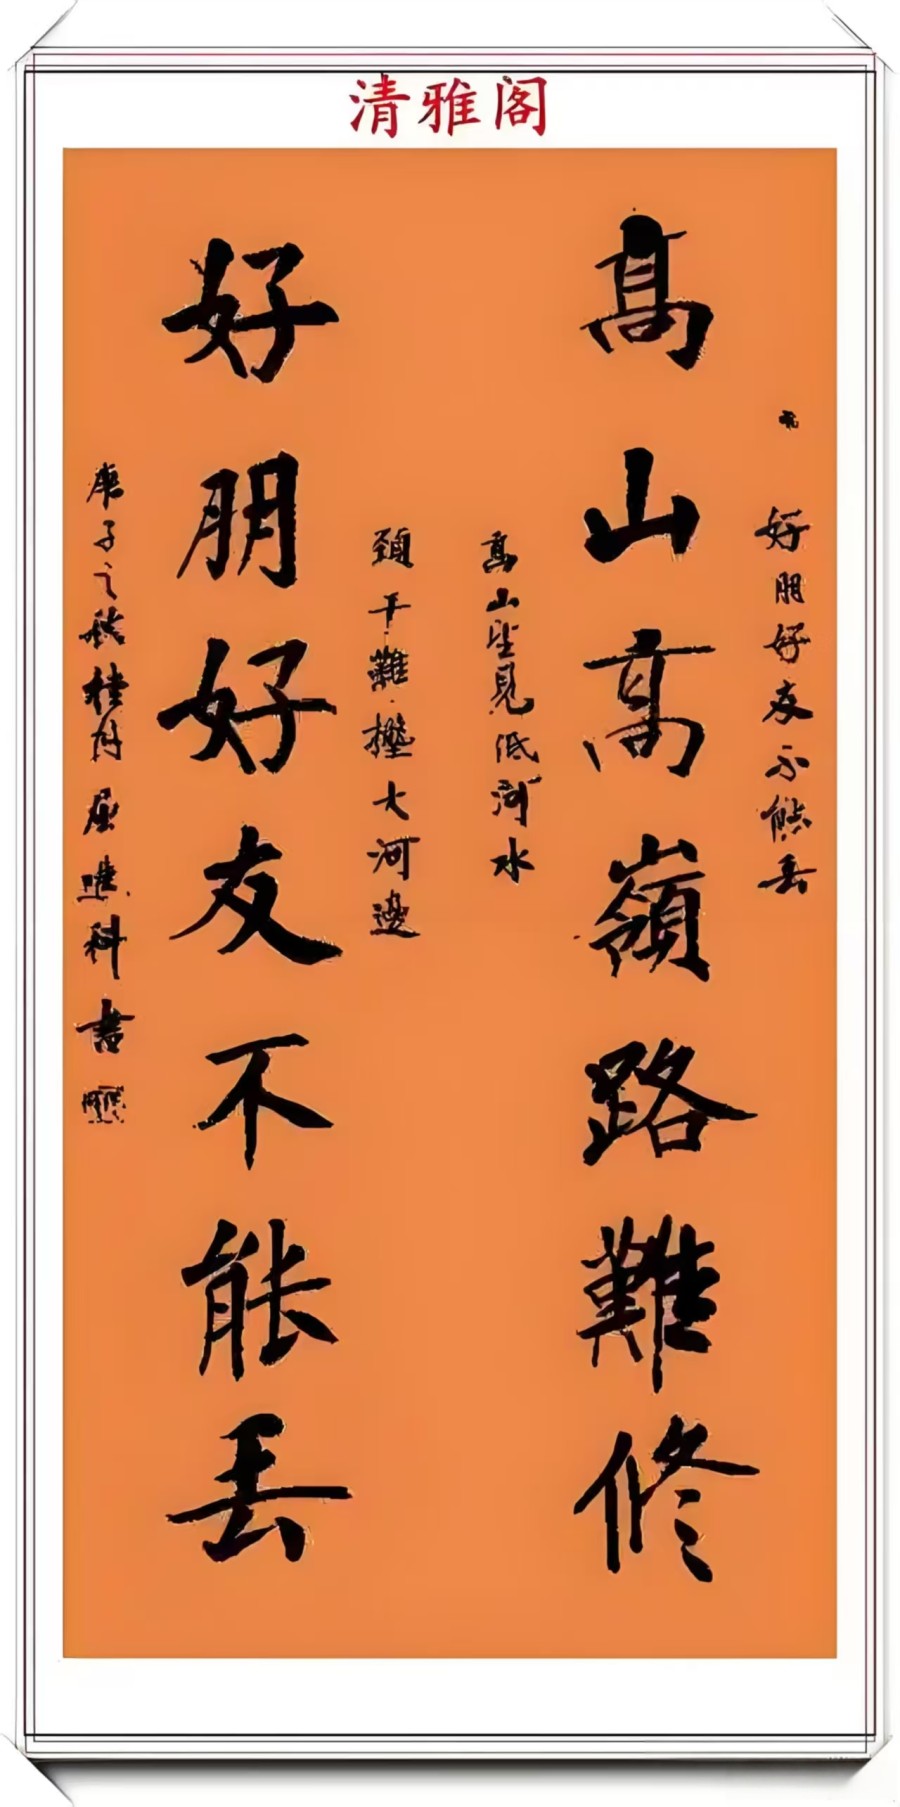 清雅阁
好朋好友不能丢
高山高嶺路難修
高山望見低河水
頸干難擔大河邊
好朋好友不能丢
庚子之秋桂月屈進科書